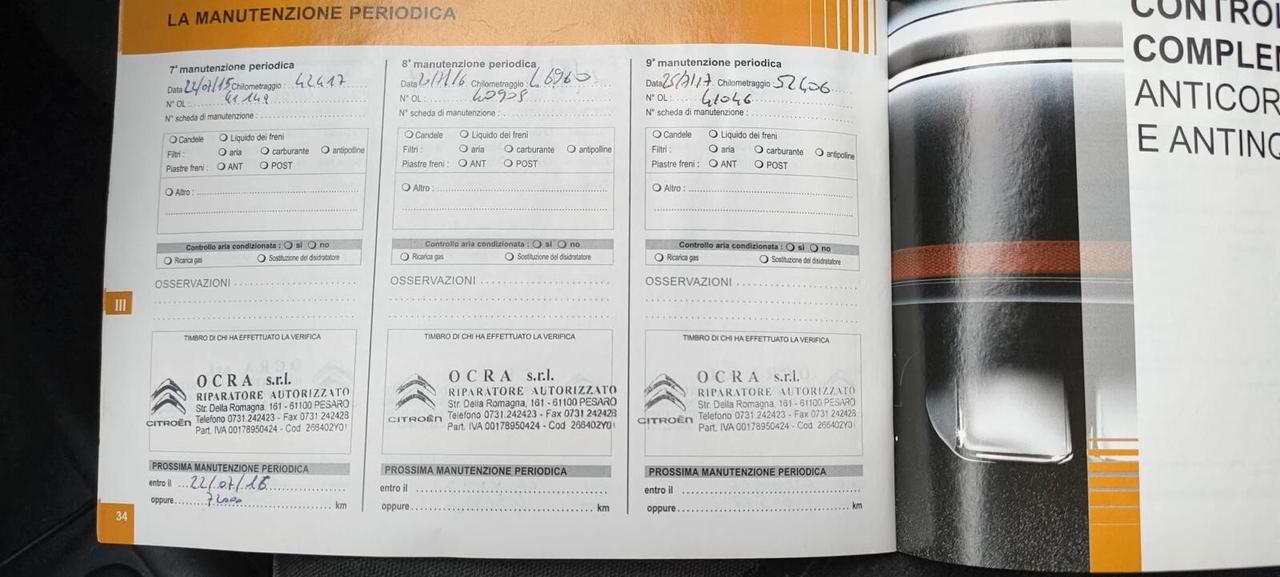 LA MANUTENZIONE PERIODICA
7ª manutenzione periodica
Data Chilometraggio : 42417
N° OL : 41149
N° scheda di manutenzione :
Candele Liquido dei freni
Filtri : aria carburante antipolline
Piastre freni : ANT POST
Altro :
Controllo aria condizionata : si no
Ricarica gas Sostituzione del disidratatore
OSSERVAZIONI
TIMBRO DI CHI HA EFFETTUATO LA VERIFICA
CITROËN
OCRA s.r.l.
RIPARATORE AUTORIZZATO
Str. Della Romagna, 161 - 61100 PESARO
Telefono 0731.242423 - Fax 0731 242428
Part. IVA 00178950424 - Cod 266402Y01
PROSSIMA MANUTENZIONE PERIODICA
entro il 22/07/16
oppure 72000 km
8ª manutenzione periodica
Data Chilometraggio : 46960
N° OL : 40908
N° scheda di manutenzione :
Candele Liquido dei freni
Filtri : aria carburante antipolline
Piastre freni : ANT POST
Altro :
Controllo aria condizionata : si no
Ricarica gas Sostituzione del disidratatore
OSSERVAZIONI
TIMBRO DI CHI HA EFFETTUATO LA VERIFICA
CITROËN
OCRA s.r.l.
RIPARATORE AUTORIZZATO
Str. Della Romagna, 161 - 61100 PESARO
Telefono 0731.242423 - Fax 0731 242428
Part. IVA 00178950424 - Cod 266402Y01
PROSSIMA MANUTENZIONE PERIODICA
entro il
oppure km
9ª manutenzione periodica
Data Chilometraggio : 52406
N° OL : 41046
N° scheda di manutenzione :
Candele Liquido dei freni
Filtri : aria carburante antipolline
Piastre freni : ANT POST
Altro :
Controllo aria condizionata : si no
Ricarica gas Sostituzione del disidratatore
OSSERVAZIONI
TIMBRO DI CHI HA EFFETTUATO LA VERIFICA
CITROËN
OCRA s.r.l.
RIPARATORE AUTORIZZATO
Str. Della Romagna, 161 - 61100 PESARO
Telefono 0731.242423 - Fax 0731 242428
Part. IVA 00178950424 - Cod 266402Y01
PROSSIMA MANUTENZIONE PERIODICA
entro il
oppure km
III
34
CONTROL
COMPLE
ANTICOR
E ANTIN